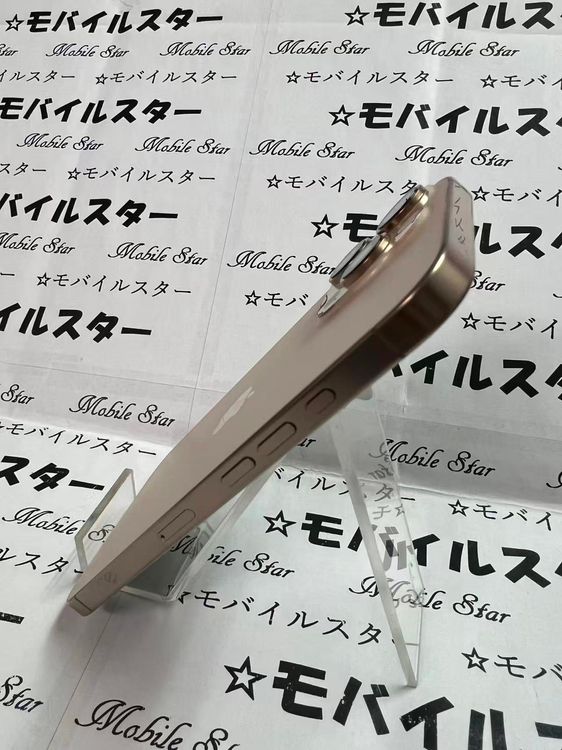 ☆モバイルスター
Mobile Star Mobile Star
☆モバイルスター ☆モバイルスター
モバイルスター ☆モバイルス
Mobile Star Mobile Star Mobile Star Mobile Star
スター ☆モバイルスター ☆モバイルスター
バイルスター ☆モバイル
Mobile Star Mobile Star Mobile Star
☆モバイルスター ☆モバ
モバイルスター
Mobile Star Mobile Star
☆モバイルスター
イルスター
Mobile Star
☆モバイルスター
☆モバイルスター
Star
☆モバイルスター
Mobile Star
☆モバイルスター
Mobile Star